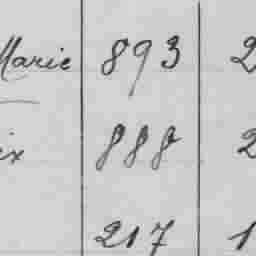 Marie 893 2
ix 888 2
217 1